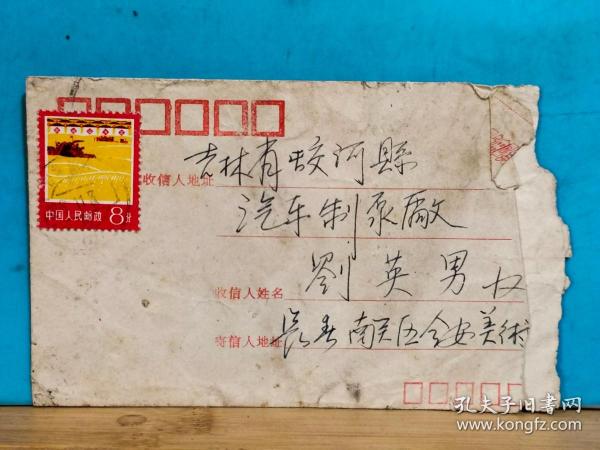 中国人民邮政 8分
收信人地址 吉林省蛟河縣
汽车制泵廠
收信人姓名 劉英男
寄信人地址 長春南关区全安美術
孔夫子旧书网
www.kongfz.com